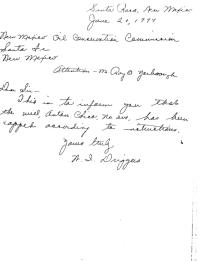 Santa Rosa, New Mexico
June 20, 19
New Mexico Oil Conservation Commission
Santa Fe
New Mexico
Attention - Mr Roy O Yarbrough
Dear Sir -
This is to inform you that
the well, Anton Chico No one, has been
capped according to instructions.
Yours truly,
W. I. Driggers